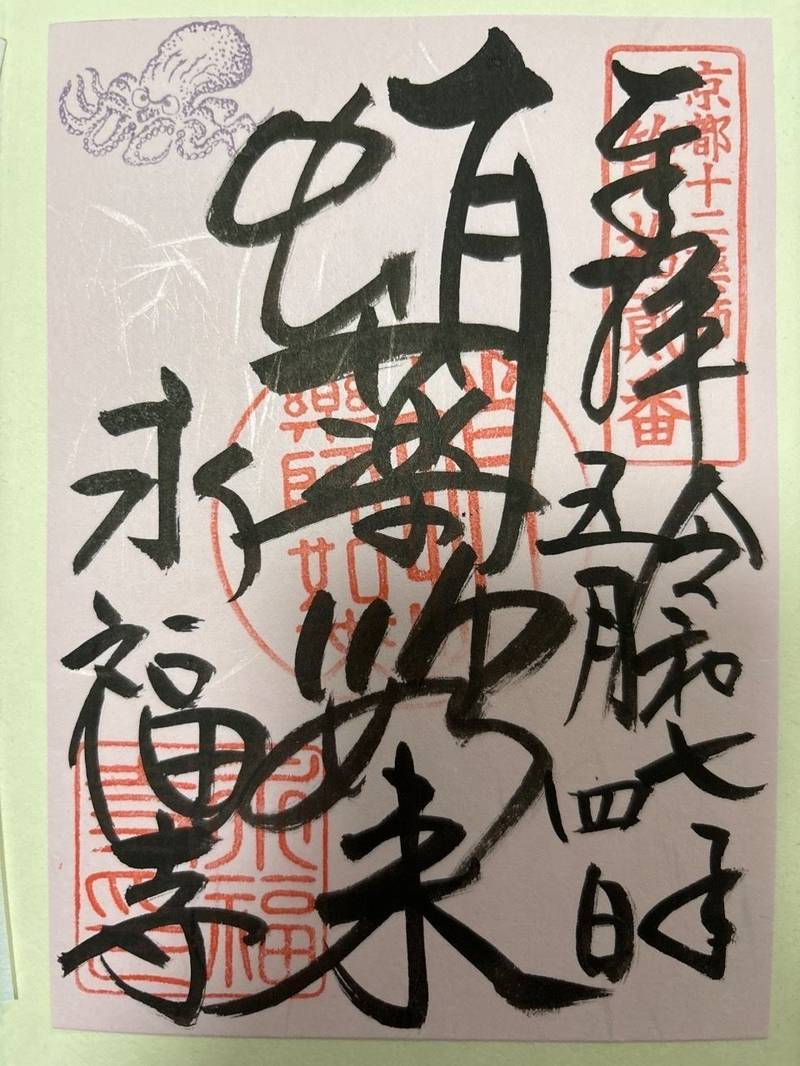 京都十二薬師
第拾貳番
奉拝
令和七年
五月四日
蛸薬師如来
藥師如来
永福寺
永福
寺印